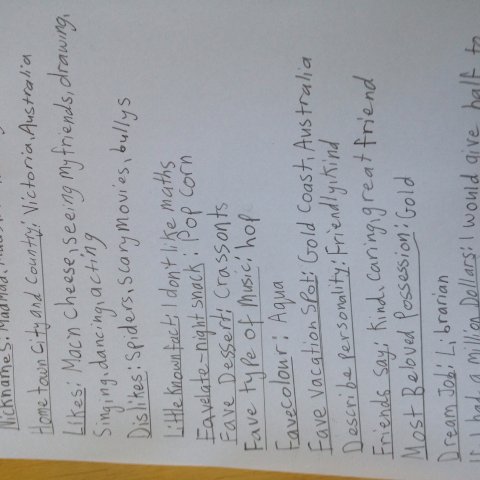 Nicknames: MadMad, Mads
Home town City and Country: Victoria, Australia
Likes: Macn Cheese, seeing my friends, drawing,
Singing, dancing, acting
Dislikes: Spiders, scary movies, bullys
Little known fact: I don't like maths
Fave late-night snack: Pop corn
Fave Dessert: Crassonts
Fave type of music: hop
Fave colour: Aqua
Fave Vacation Spot: Gold Coast, Australia
Describe personality: Friendly, kind
Friends say: Kind, caring, great friend
Most Beloved Possession: Gold
Dream Job: Librarian
If I had a Million Dollars: I would give half to